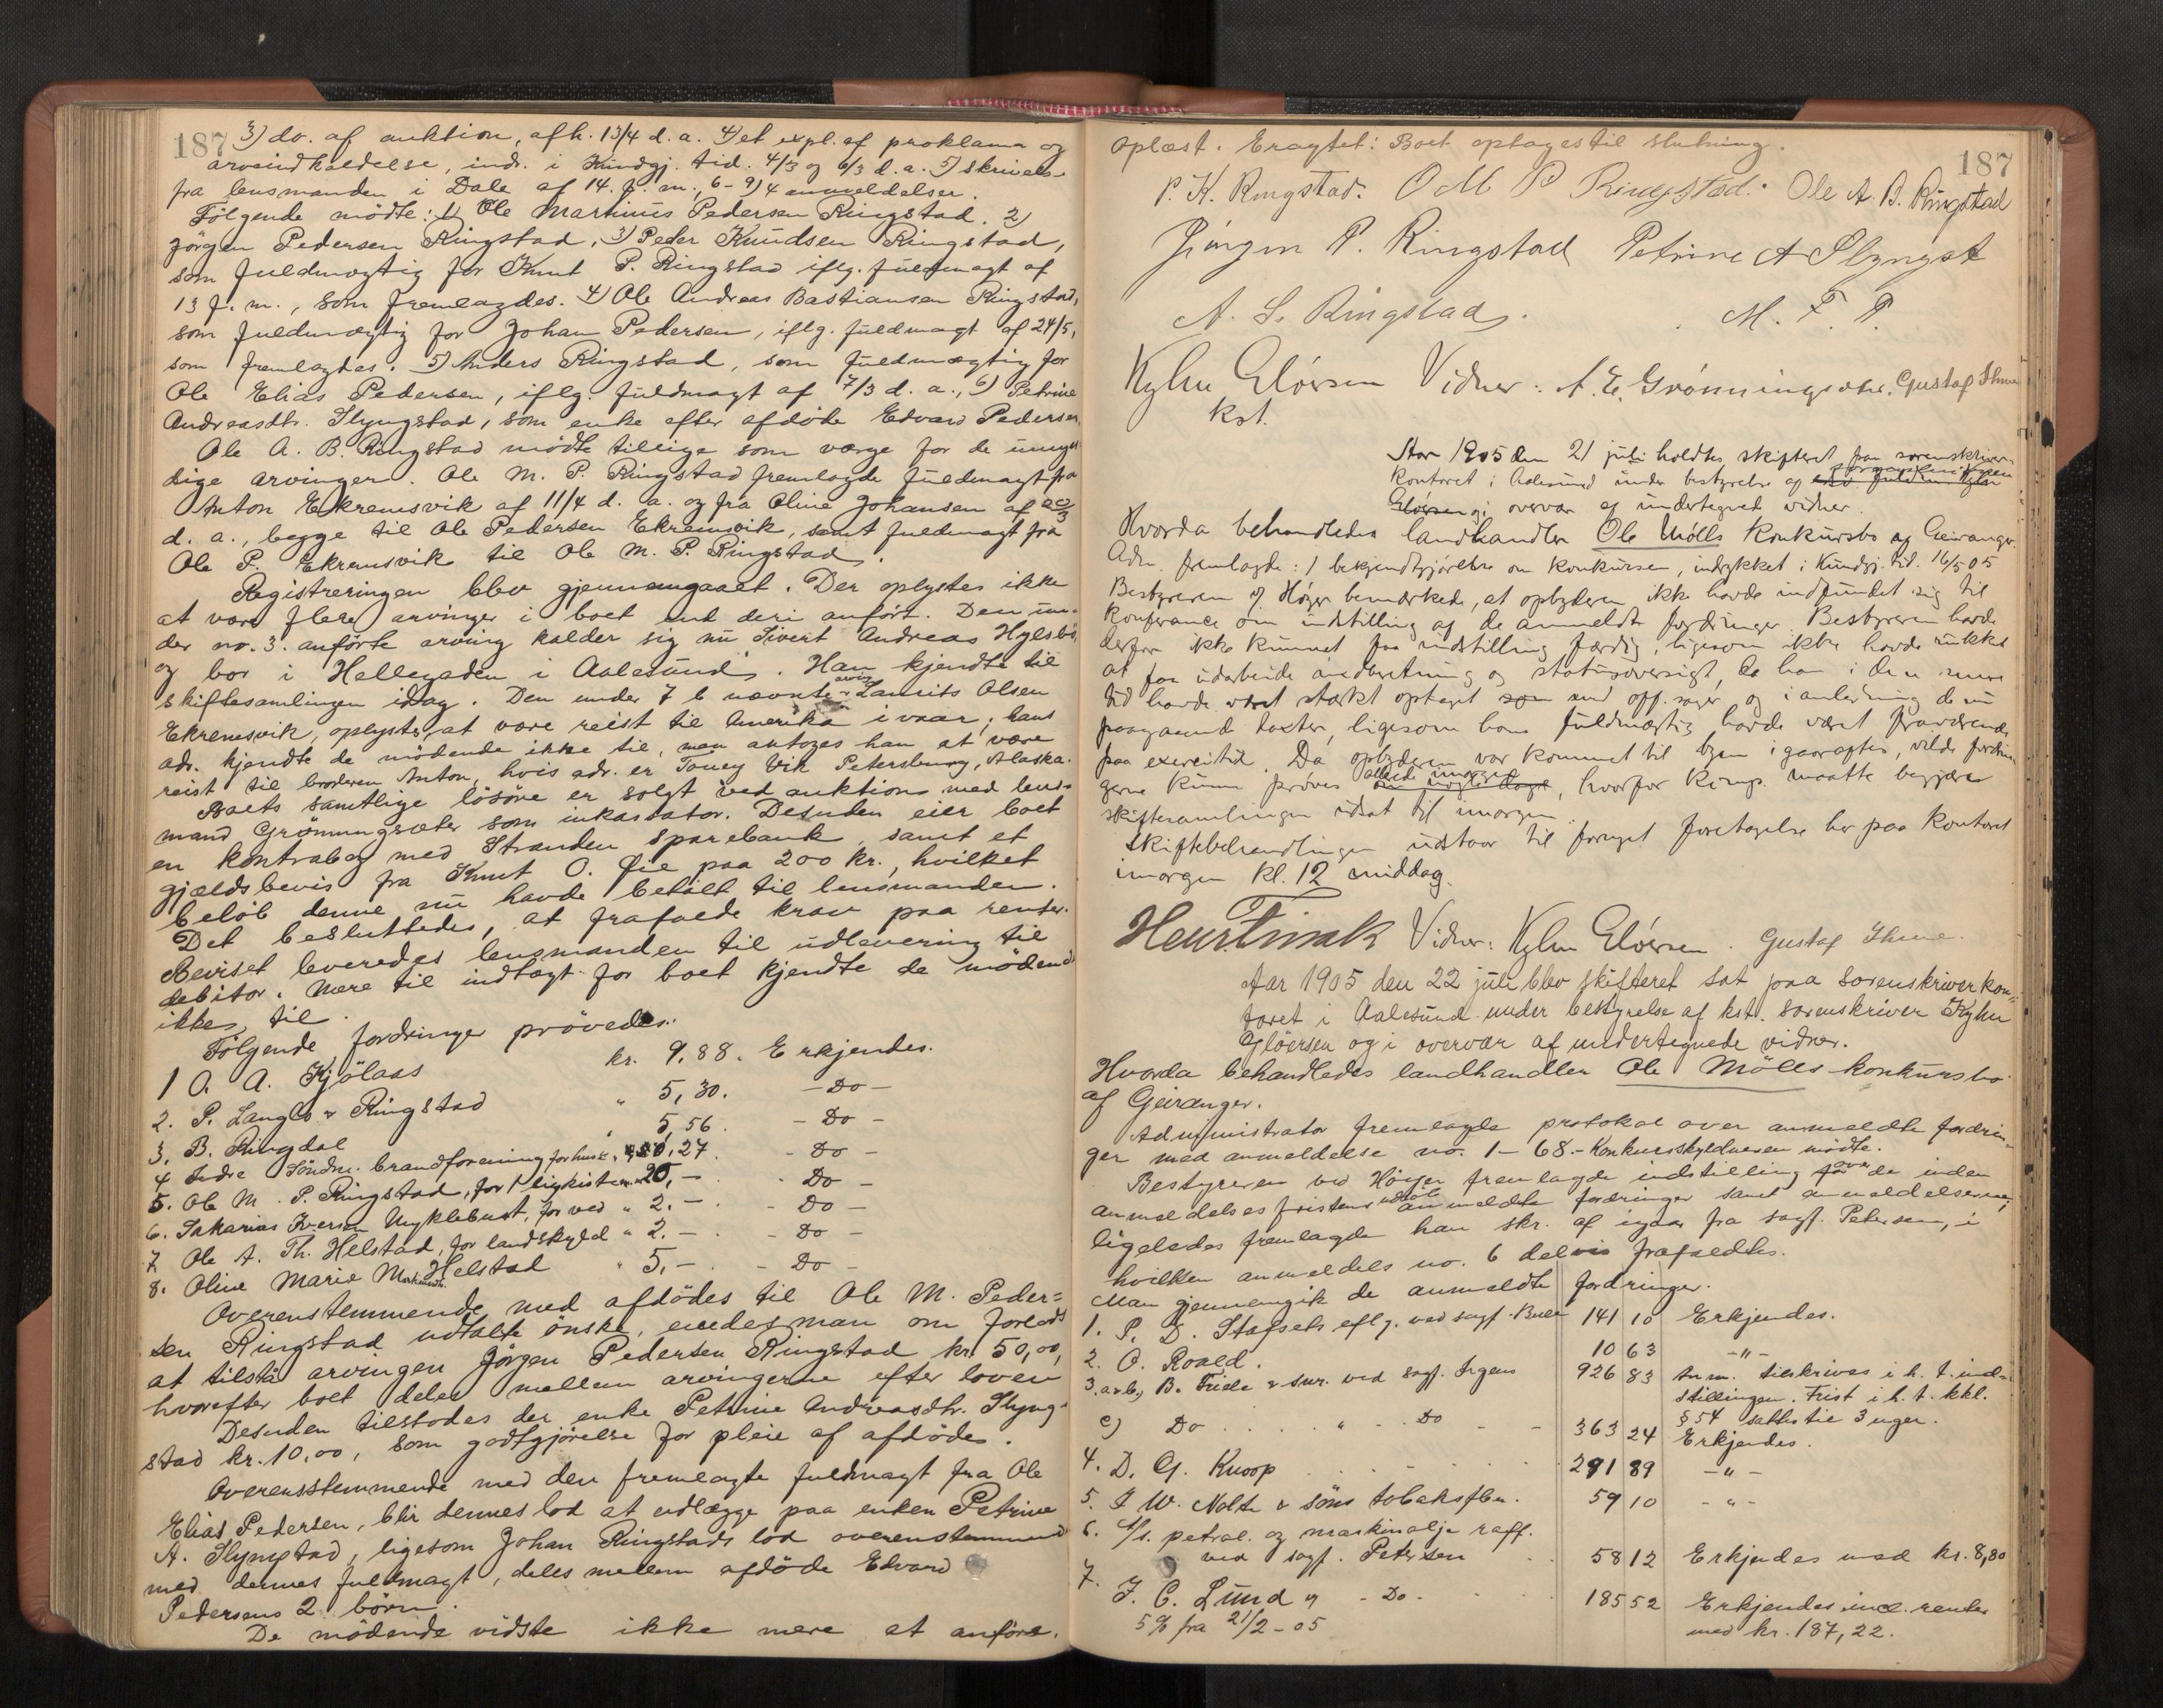 187
3) do. af auktion, afh. 13/4 d. a. 4) et expl. af proklama og
arveindkaldelse, indr. i Kundgj. tid. 4/3 og 6/3 d. a. 5) skrivelse
fra lensmanden i Dale af 14. f. m., 6-9) 4 anmeldelser.
Følgende mødte: 1) Ole Martinus Pedersen Ringstad. 2)
Jørgen Pedersen Ringstad, 3) Peder Knudsen Ringstad,
som fuldmægtig for Knut P. Ringstad iflg. fuldmagt af
13 f. m., som fremlagdes. 4) Ole Andreas Bastiansen Ringstad,
som fuldmægtig for Johan Pedersen, iflg. fuldmagt af 24/5,
som fremlagdes. 5) Anders Ringstad, som fuldmægtig for
Ole Elias Pedersen, iflg. fuldmagt af 7/3 d. a., 6) Petrine
Andreasdtr. Slyngstad, som enke efter afdøde Edvard Pedersen.
Ole A. B. Ringstad mødte tillige som værge for de umyn-
dige arvinger. Ole M. P. Ringstad fremlagde fuldmagt fra
Anton Ekremsvik af 11/4 d. a. og fra Oline Johansen af 20/3
d. a., begge til Ole Pedersen Ekremsvik, samt fuldmagt fra
Ole P. Ekremsvik til Ole M. P. Ringstad.
Registreringen blev gjennemgaaet. Der oplystes ikke
at være flere arvinger i boet end deri anført. Den un-
der no. 3. anførte arving kalder sig nu Sivert Andreas Hylsbö
og bor i Hellegaden i Aalesund. Han kjendte til
skiftesamlingen idag. Den under 7 b nævnte arving Laurits Olsen
Ekremsvik, oplystes, at være reist til Amerika i vaar; hans
adr. kjendte de mödende ikke til, men antoges han at være
reist til broderen Anton, hvis adr. er Toney Vik Petersburg, Alaska.
Boets samtlige lösöre er solgt ved auktion med lens-
mand Grönningsæter som inkassator. Desuden eier boet
en kontrabog med Stranden sparebank, samt et
gjældsbevis fra Knut O. Öie paa 200 kr., hvilket
belöb denne nu havde betalt til lensmanden.
Det besluttedes, at frafalde krav paa renter.
Beviset leveredes lensmanden til udlevering til
debitor. Mere til indtægt for boet kjendte de mödende
ikke til.
Følgende fordringer prövedes:
1 O. A. Kjölaas kr. 9,88. Erkjendes.
2. P. Langlo v Ringstad " 5,30. - Do -
3. B. Ringdal " 5,56. - Do -
4 Indre Söndm. brandforening for huse " 80,27. - Do -
5. Ole M. P. Ringstad, for 1 ligkiste " 20,- . Do -
6. Sakarias Iversen Myklebust, for ved " 2.- . - Do -
7. Ole A. Th. Helstad, for landskyld " 2.- . - Do -
8. Oline Marie Martinusdtr. Helstad " 5,- . - Do -
Overenstemmende med afdödes til Ole M. Peder=
sen Ringstad udtalte önske, enedes man om forlods
at tilstå arvingen Jörgen Pedersen Ringstad kr. 50,00,
hvorefter boet deles mellem arvingerne efter loven
Desuden tilstodes der enke Petrine Andreasdtr. Slyng-
stad kr. 10,00, som godtgjörelse for pleie af afdöde.
Overensstemmende med den fremlagte fuldmagt fra Ole
Elias Pedersen, blir dennes lod at udlægge paa enken Petrine
A. Slyngstad, ligesom Johan Ringstads lod overenstemmende
med dennes fuldmagt, deles mellem afdöde Edvard
Pedersens 2 börn.
De mödende vidste ikke mere at anføre.
187
Oplæst. Eragtet: Boet optages til slutning.
P. K. Ringstad. O M P Ringstad. Ole A. B. Ringstad
Jörgen P. Ringstad Petrine A Slyngst
A. S. Ringstad. M. F. P.
Kyhn Glöersen Vidner: A. E. Grönningsæter. Gustaf Thue
kst.
Aar 1905 den 21 juli holdtes skifteret paa sorenskriver-
kontoret i Aalesund under bestyrelse af
Glöersen og i overvær af undertegnede vidner.
Hvorda behandledes landhandler Ole Mölls konkursbo af Geiranger.
Adm. fremlagde: 1 bekjendtgjörelse om konkursen, indrykket i Kundgj. tid. 16/5 05
Bestyreren og Höyer bemærkede, at opbyderen ikke havde indfundet sig til
konferance om indstilling af de anmeldte fordringer. Bestyreren havde
derfor ikke kunnet faa indstilling færdig, ligesom ikke havde rukket
at faa udarbeide indberetning og statusoversigt, da han i den senere
tid havde været stærkt optaget som med off. sager og i anledning de nu
paagaaende takster, ligesom hans fuldmægtig havde været fraværende
paa exercitid. Da opbyderen var kommet til byen igaaraftes, vilde fordrin-
gerne kunne prøves allerede imorgen, hvorfor komp. maatte begjære
skiftesamlingen udsat til imorgen.
Skiftebehandlingen udstaar til fornyet foretagelse her paa kontoret
imorgen kl. 12 middag.
Henr Finak Vidner: Kyhn Glöersen. Gustaf Thue.
Aar 1905 den 22 juli blev skifteret sat paa sorenskriverkon-
toret i Aalesund under bestyrelse af kst. sorenskriver Kyhn
Glöersen og i overvær af undertegnede vidner.
Hvorda behandledes landhandler Ole Mölls konkursbo
af Geiranger.
Administrator fremlagde protokol over anmeldte fordrin-
ger med anmeldelse no. 1-68. Konkursskyldneren mödte.
Bestyreren ved Höyer fremlagde indstilling over de inden
anmeldelsesfristens udlöb anmeldte fordringer samt anmeldelserne;
ligeledes fremlagde han skr. af igaar fra sagf. Petersen, i
hvilken anmeldels no. 6 delvis frafaldtes.
Man gjennemgik de anmeldte fordringer.
1. P. D. Stafsets eflg. ved sagf. Bull 141 10 Erkjendes.
2. O. Roald. 10 63 -"-
3. a & b, B. Friele & sön. ved sagf. Irgens 926 83 Anm. tilskrives i h. t. ind-
stillingen. Frist i h. t. kkl.
§ 54 sattes til 3 uger.
c) Do " - Do - 363 24 Erkjendes.
4. D. G. Knoop 291 89 -"-
5. J W. Nolte & söns tobaksfbr. 59 10 -"-
6. A/s. petrol. og maskinolje raff.
ved sagf. Petersen 58 12 Erkjendes med kr. 8,80
7. J. C. Lund " - Do - 185 52 Erkjendes incl. renter
5 % fra 21/2 - 05 med kr. 187,22.